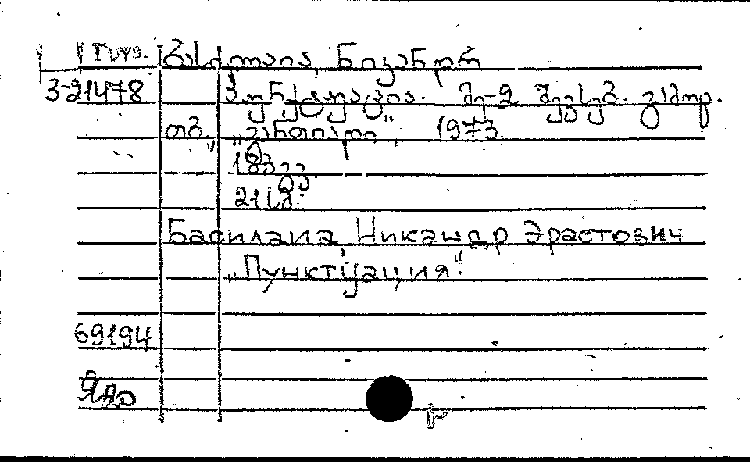 ბასილაია, ნიკანორ
3-21478 პუნქტუაცია. მე-2 შევსებ. გამოც.
თბ., „განათლება", 1973
188 გვ.
21 სმ.
Басилаиа, Никандр Эрастович
„Пунктуация".
69194